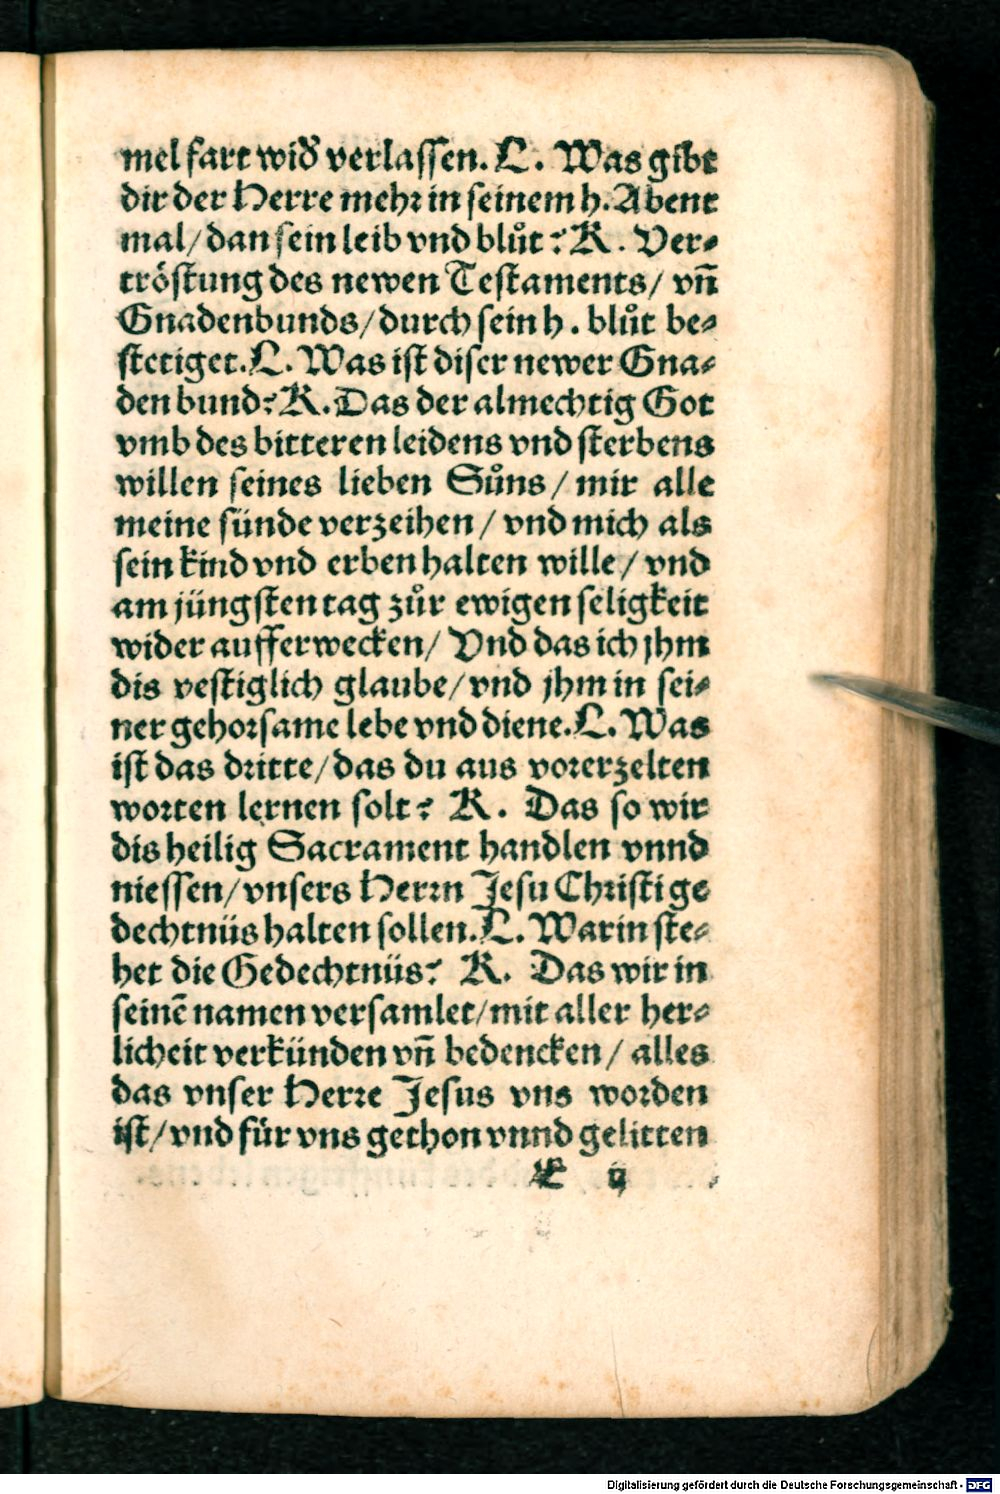 mel fart wid͛ verlassen. L. Was gibt
dir der Herre mehr in seinem h. Abent
mal/ dan sein leib vnd blůt? K. Ver⸗
tröstung des newen Testaments/ vn̄
Gnadenbunds/ durch sein h. blůt be⸗
stetiget. L. Was ist diser newer Gna⸗
den bund? K. Das der almechtig Got
vmb des bitteren leidens vnd sterbens
willen seines lieben Sůns/ mir alle
meine sünde verzeihen/ vnd mich als
sein kind vnd erben halten wille/ vnd
am jüngsten tag zůr ewigen seligkeit
wider aufferwecken/ Vnd das ich jhm
dis vestiglich glaube/ vnd jhm in sei⸗
ner gehorsame lebe vnd diene. L. Was
ist das dritte/ das du aus vorerzelten
worten lernen solt? K. Das so wir
dis heilig Sacrament handlen vnnd
niessen/ vnsers Herrn Jesu Christi ge
dechtnüs halten sollen. L. Warin ste⸗
het die Gedechtnüs? K. Das wir in
seinē namen versamlet/ mit aller her⸗
licheit verkünden vn̄ bedencken/ alles
das vnser Herre Jesus vns worden
ist/ vnd für vns gethon vnnd gelitten
ij
Digitalisierung gefördert durch die Deutsche Forschungsgemeinschaft - DFG